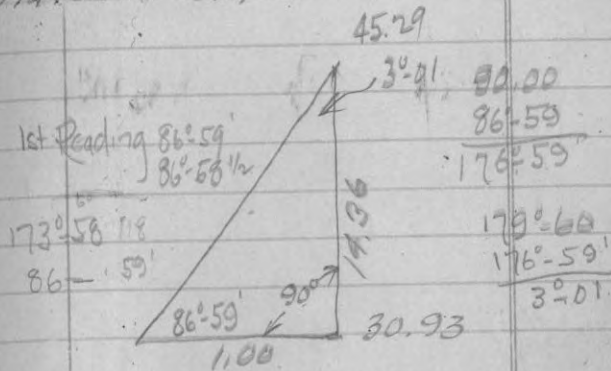 45.29
3°-01'
90.00
86°-59
176°-59
1st Reading 86°-59'
86°-58 1/2
173°-58
86 - 59'
14.36
179°-60
176°-59'
3°-01'
86°-59'
90°
30.93
1.00